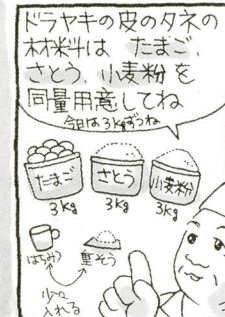 ドラヤキの皮のタネの
材料は たまご、
さとう、小麦粉を
同量用意してね
今日は3kgずつね
たまご
さとう
小麦粉
3kg
3kg
3kg
はちみつ
重そう
少々
入れる